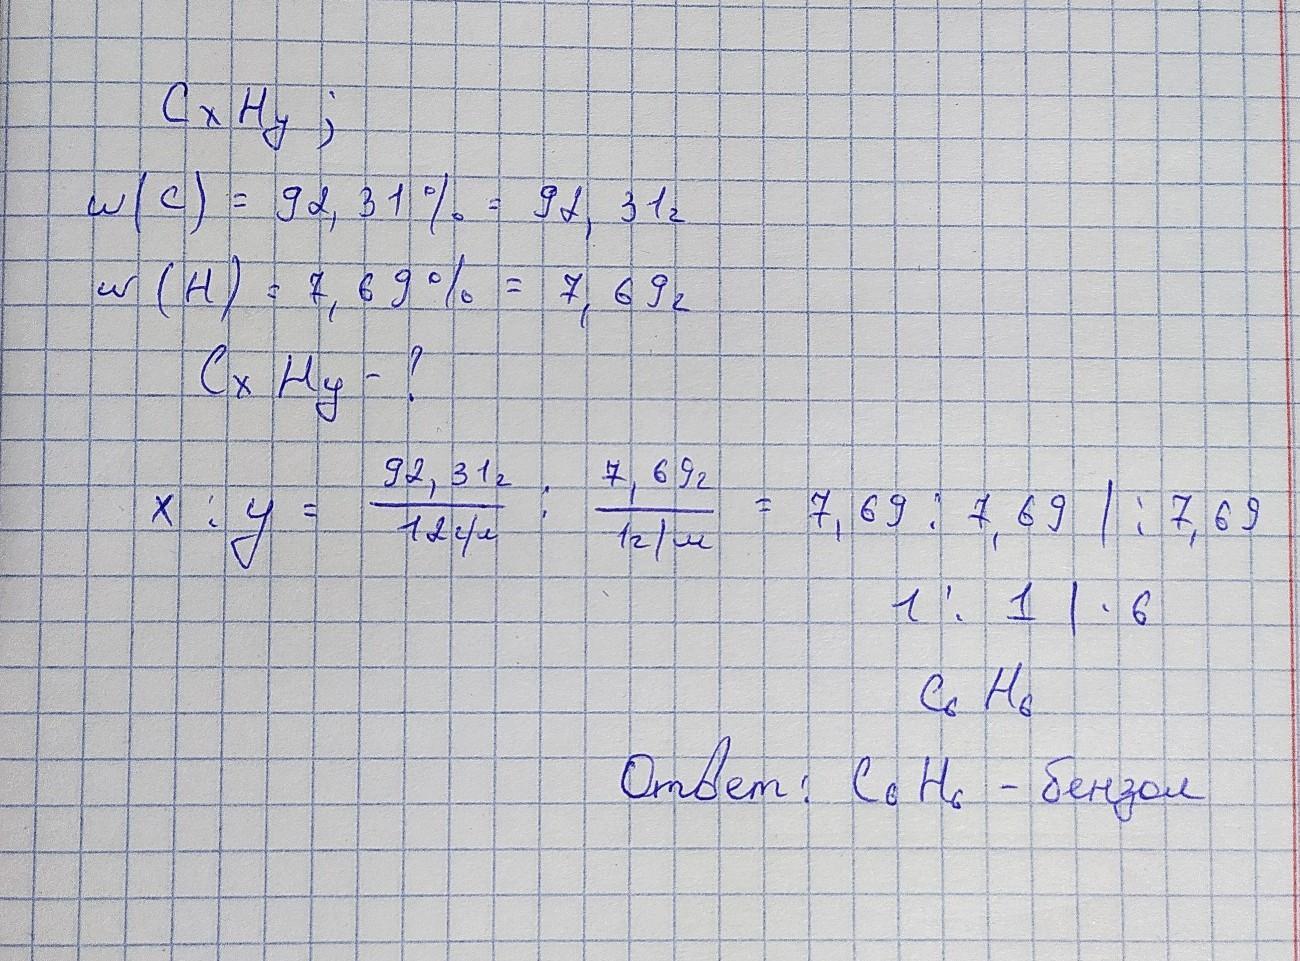 CxHy;
w(C) = 92,31% = 92,31г
w(H) = 7,69% = 7,69г
CxHy - ?
x : y = 92,31г/12г/м : 7,69г/1г/м = 7,69 : 7,69 | : 7,69
1 : 1 | · 6
C₆H₆
Ответ: C₆H₆ - бензол